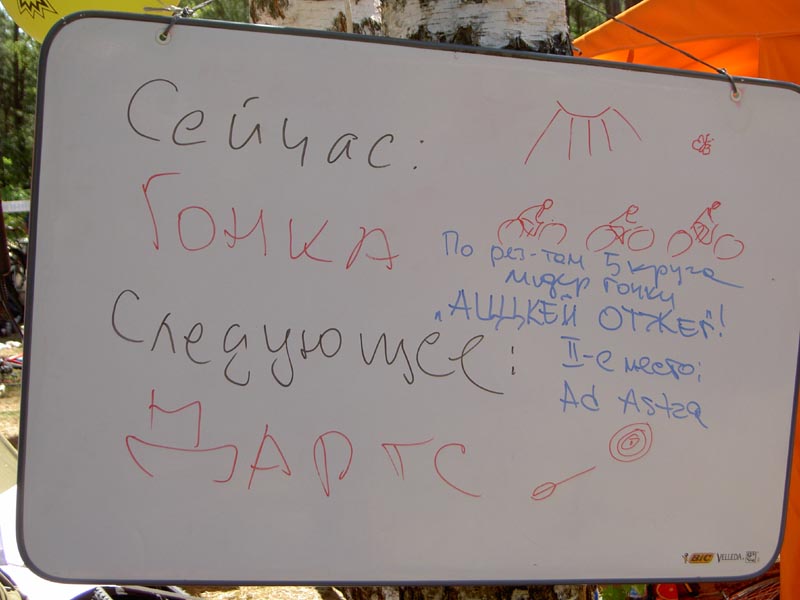 Сейчас:
Гонка
По рез-там 5 круга
лидер гонки
"АЦЦКЕЙ ОТЖЕГ"!
Следующее:
II-е место:
Ad Astra
ДАРТС
BIC VELLEDA